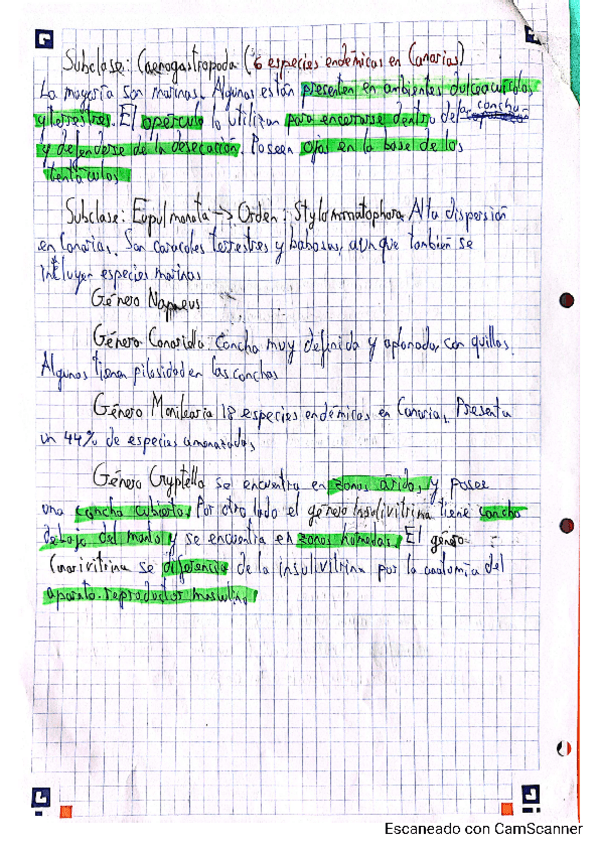 Subclase: Caenogastropoda (6 especies endémicas en Canarias)
La mayoría son marinas. Algunas están presenten en ambientes dulceacuícolas
y terrestres. El opérculo lo utilizan para encerrarse dentro de la concha
y defenderse de la desecación. Poseen ojos en la base de los
tentáculos
Subclase: Eupulmonata -> Orden: Stylommatophora Alta dispersión
en Canarias. Son caracoles terrestres y babosas, aunque también se
incluyen especies marinas
Género Napaeus
Género Canaridla: Concha muy definida y aplanada, con quillas.
Algunos tienen pilosidad en las conchas
Género Monilearia 18 especies endémicas en Canarias. Presenta
un 44% de especies amenazadas
Género Cryptella se encuentra en zonas áridas, y posee
una concha cubierta. Por otro lado el género Insulivitrina tiene concha
debajo del manto y se encuentra en zonas húmedas. El género
Canarivitrina se diferencia de la insulivitrina por la anatomía del
aparato reproductor masculino
Escaneado con CamScanner